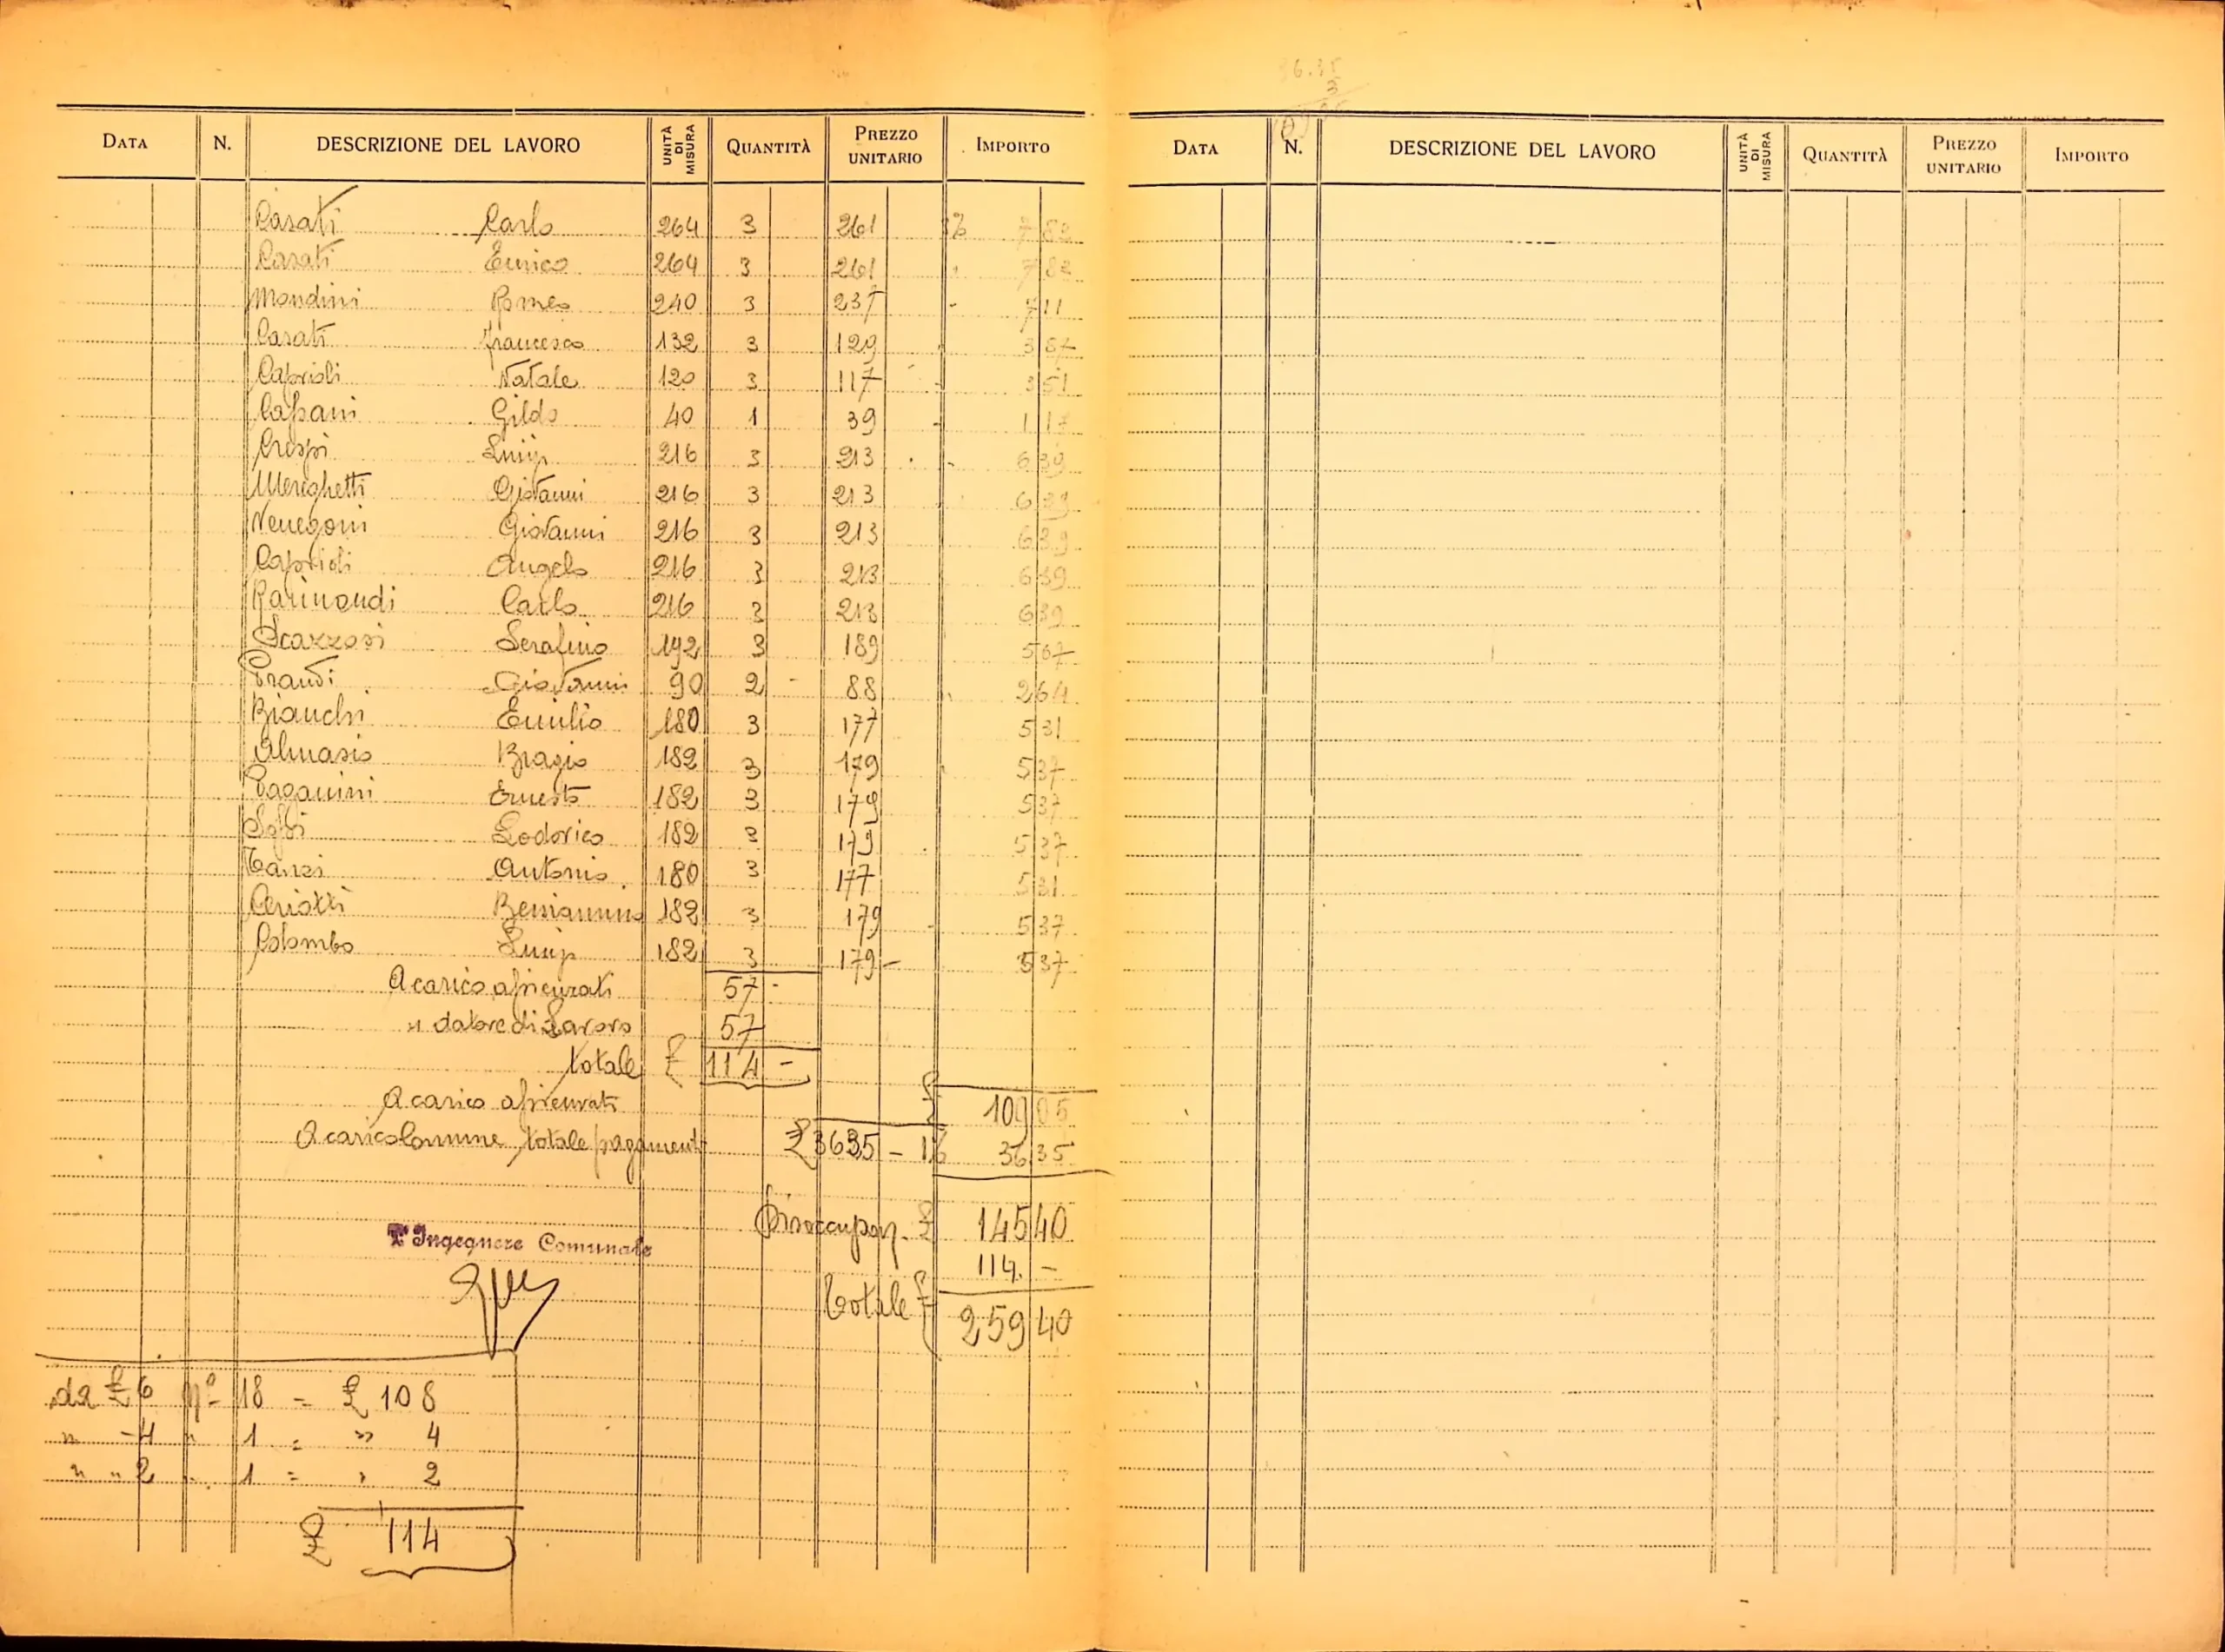 36.35
3
DATA N. DESCRIZIONE DEL LAVORO UNITÀ DI MISURA QUANTITÀ PREZZO UNITARIO IMPORTO
Casati Carlo 264 3 261 3% 7 83
Casati Enrico 264 3 261 7 83
Mondini Romeo 240 3 237 - 7 11
Casati Francesco 132 3 129 3 87
Caprioli Natale 120 3 117 3 51
Cassani Gildo 40 1 39 1 17
Crespi Luigi 216 3 213 6 39
Mereghetti Giovanni 216 3 213 6 39
Venegoni Giovanni 216 3 213 6 39
Caprioli Angelo 216 3 213 6 39
Raimondi Carlo 216 3 213 6 39
Scazzosi Serafino 192 3 189 5 67
Prandi Giovanni 90 2 - 88 2 64
Bianchi Emilio 180 3 177 5 31
Almasio Biagio 182 3 179 5 37
Paganini Ernesto 182 3 179 5 37
Lodovico 182 3 179 5 37
Tanzi Antonio 180 3 177 5 31
Ceriotti Beniamino 182 3 179 5 37
Colombo Luigi 182 3 179 - 5 37
A carico assicurati 57 -
" datore di Lavoro 57
totale £ 114 -
A carico assicurati £ 109 05
A carico Comune, totale pagamenti £ 3635 - 1% 36 35
Disoccupaz. £ 145 40
114. -
Totale £ 259 40
L'Ingegnere Comunale
da £ 6 n° 18 = £ 108
" - 4 " 1 = " 4
" " 2 " 1 = " 2
£ 114
DATA N. DESCRIZIONE DEL LAVORO UNITÀ DI MISURA QUANTITÀ PREZZO UNITARIO IMPORTO